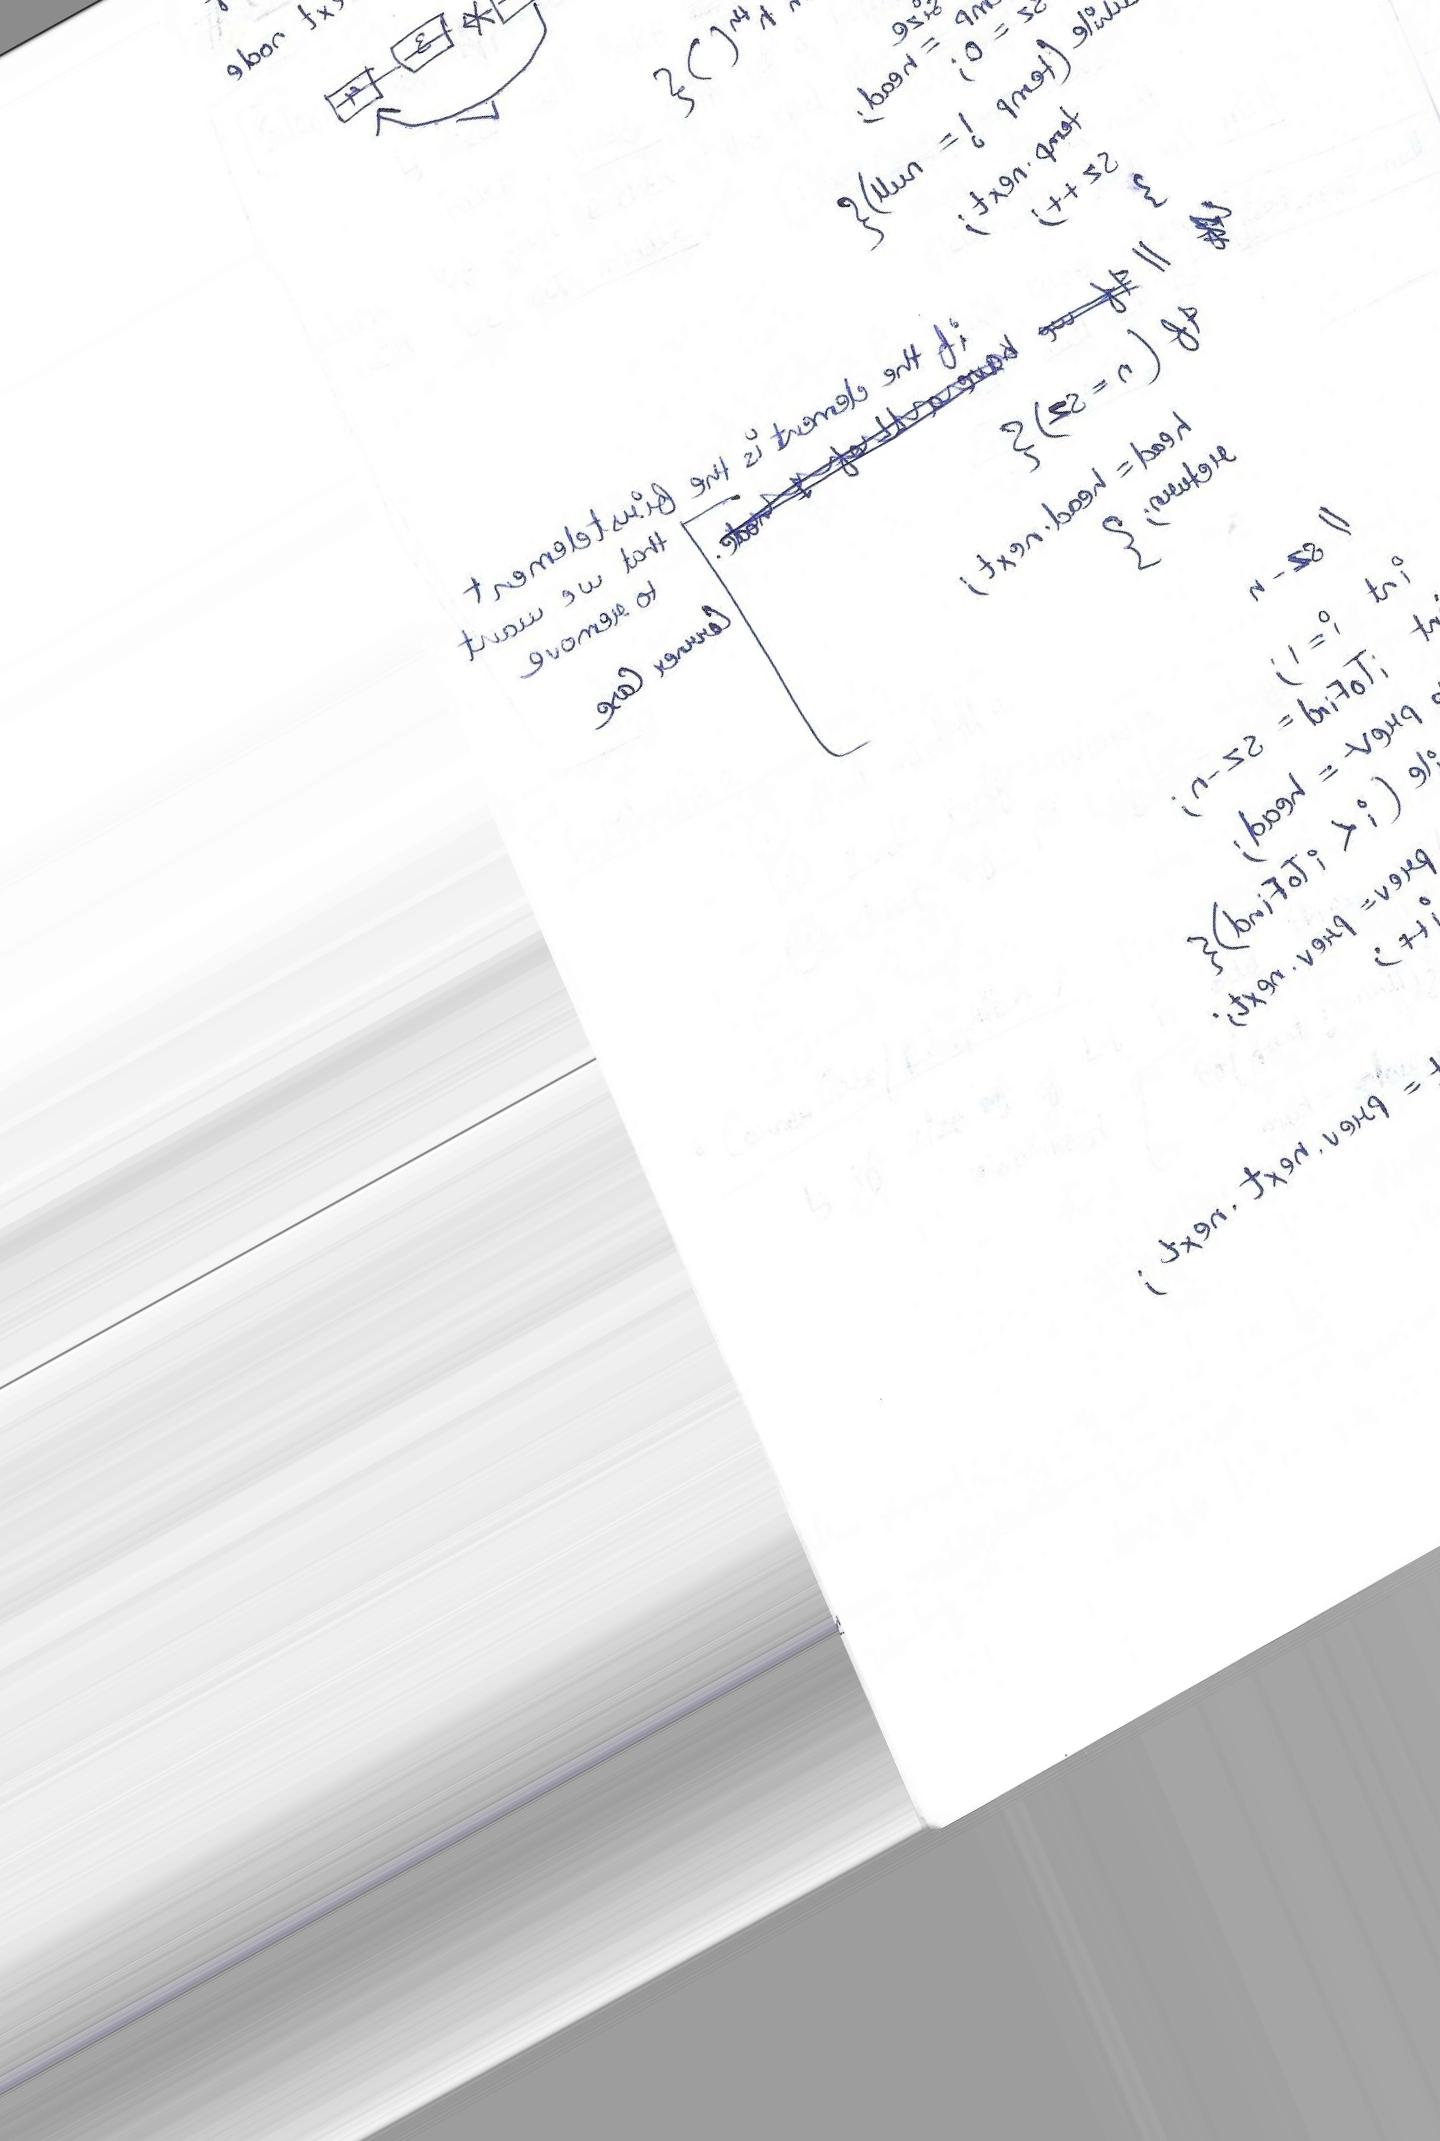 ext node
4 3
n th ( ) {
temp = head;
size
sz = 0;
while (temp != null) {
temp.next;
sz ++;
}
//
if the element is the first element
that we want
to remove
Corner Case
if (n = sz) {
head = head.next;
return;
}
// sz - n
int i = 1;
iToFind = sz - n;
prev = head;
(i < iToFind) {
prev = prev.next;
i++;
= prev.next.next;